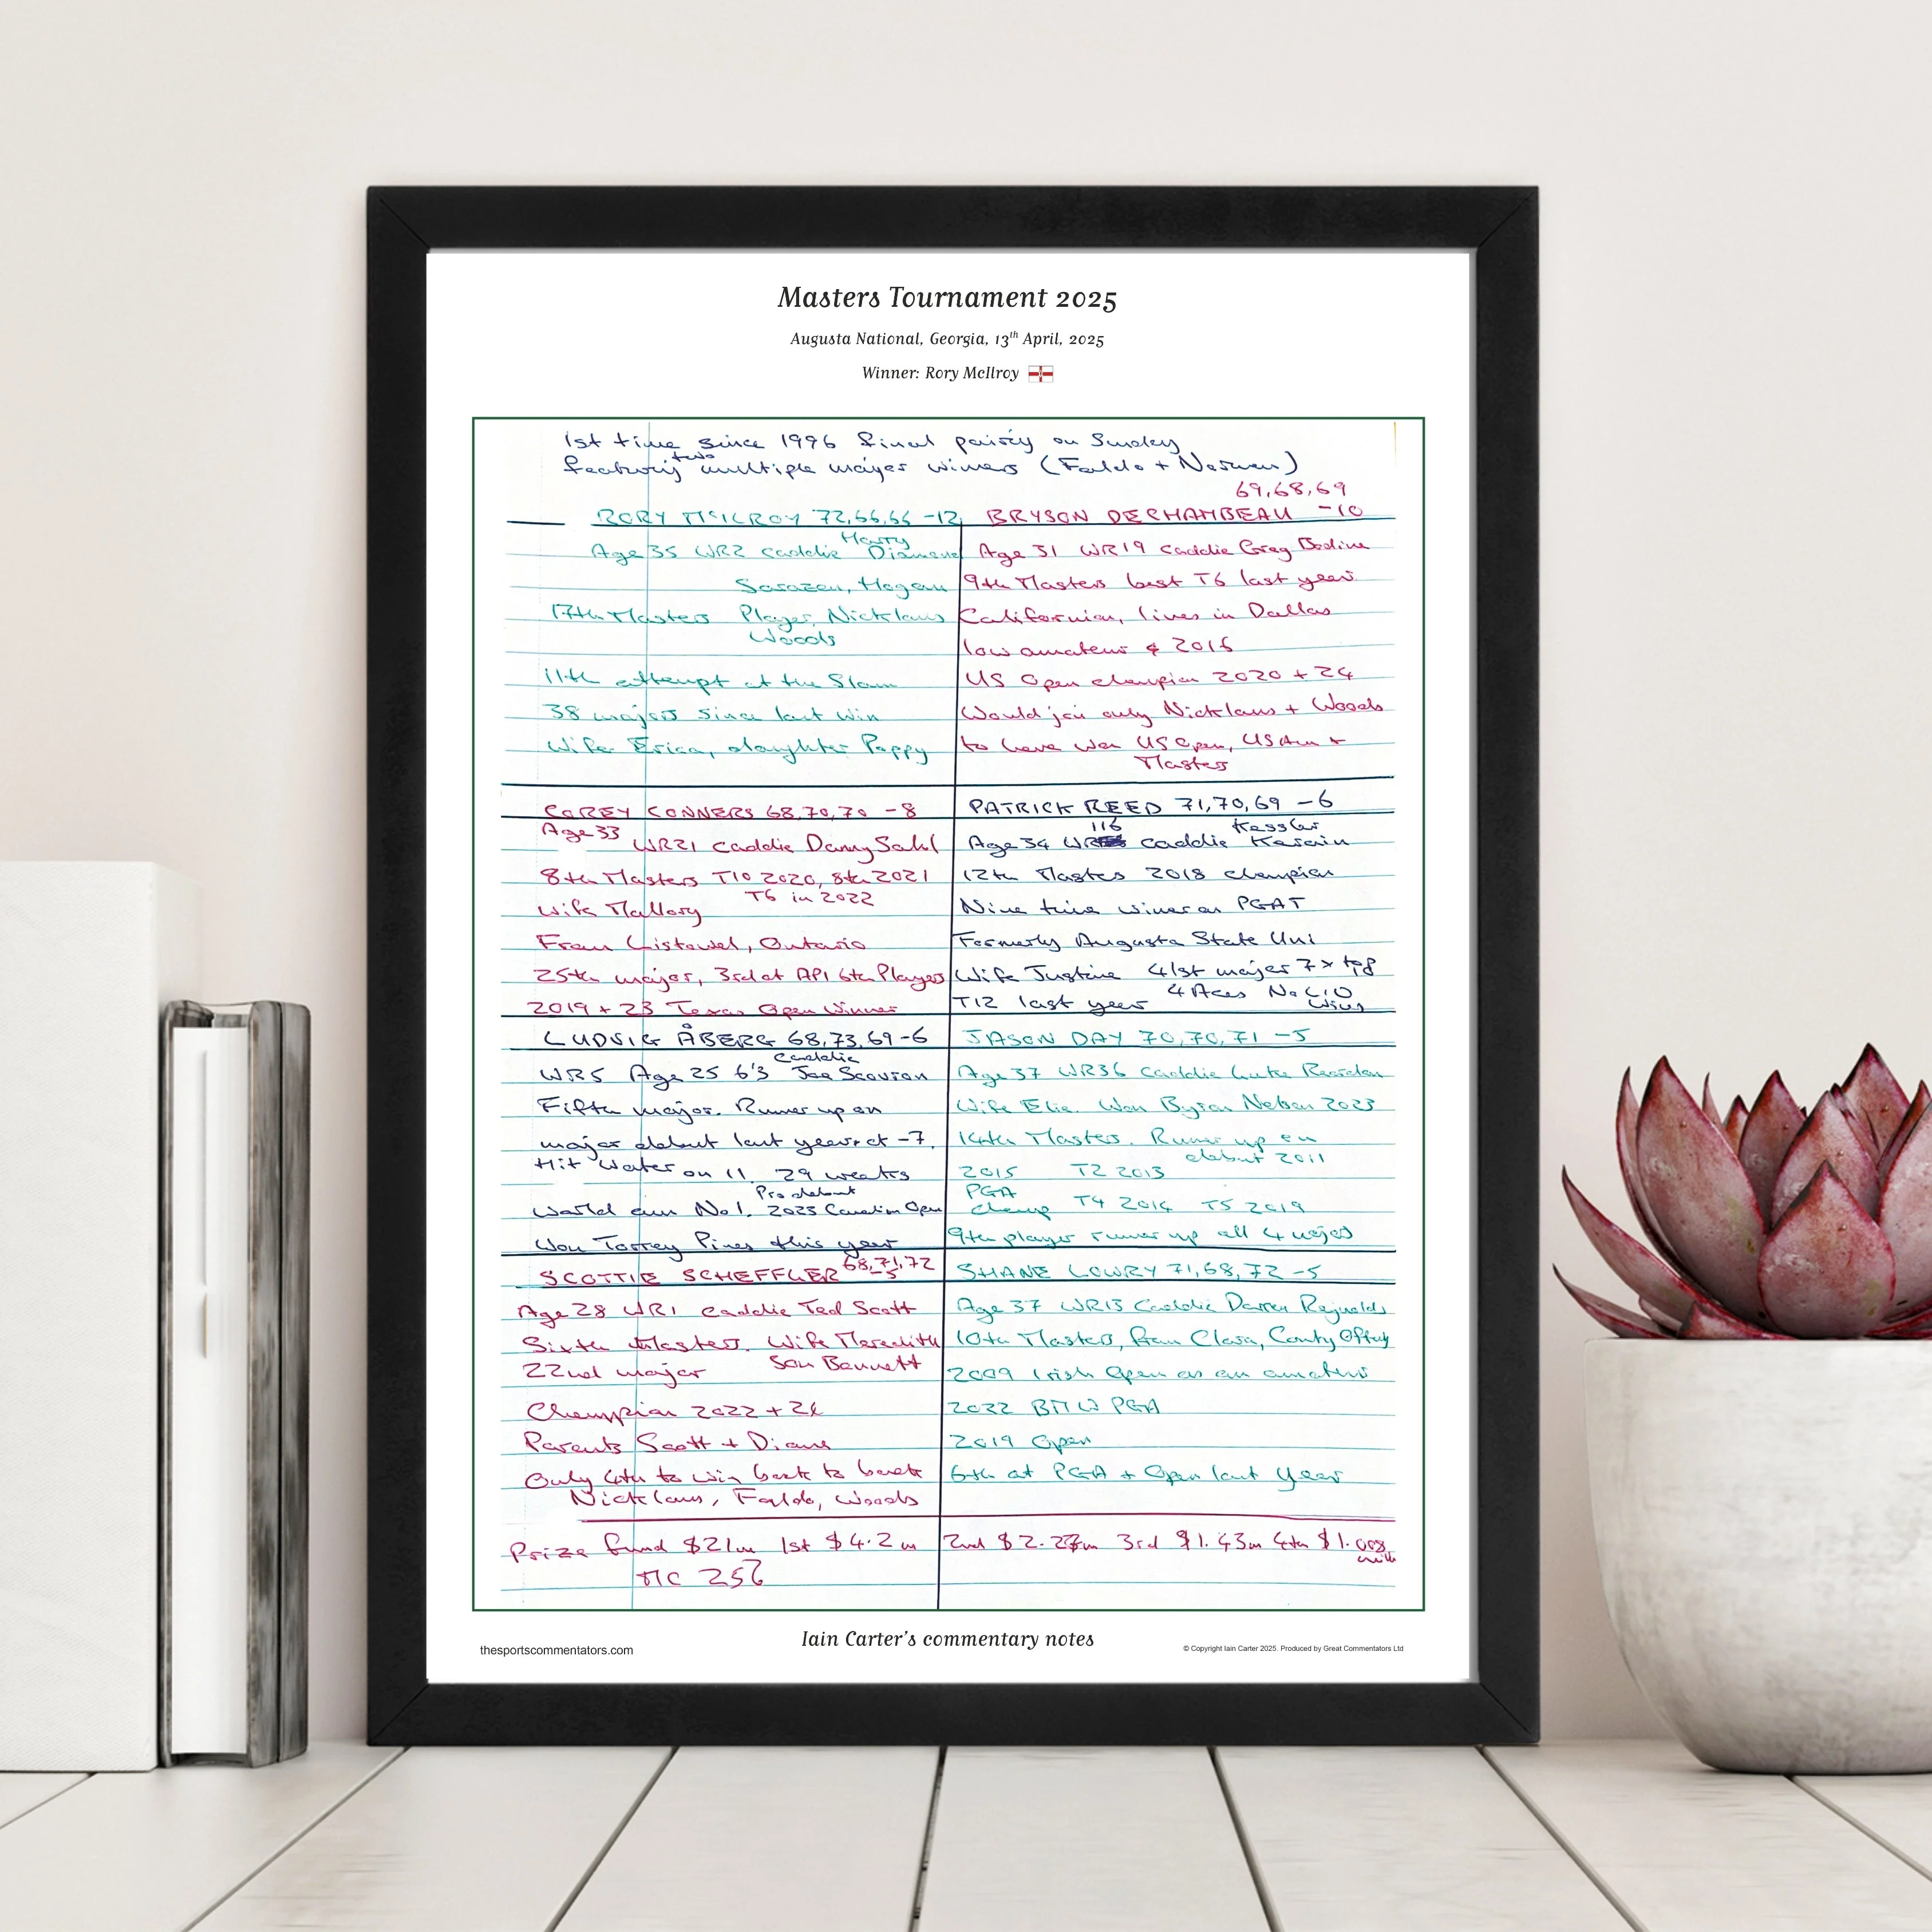 Masters Tournament 2025
Augusta National, Georgia, 13th April, 2025
Winner: Rory McIlroy
1st time since 1996 final pairing on Sunday
featuring two multiple major winners (Faldo + Norman)
RORY McILROY 72,66,66 -12
Age 35 WR2 caddie Harry Diamond
Sarazen, Hogan
17th Masters Player, Nicklaus
Woods
11th attempt at the Slam
38 majors since last win
Wife Erica, daughter Poppy
69,68,69
BRYSON DECHAMBEAU -10
Age 31 WR19 caddie Greg Bodine
9th Masters best T6 last year
Californian, lives in Dallas
low amateur 2016
US Open champion 2020 + 24
Would join only Nicklaus + Woods
to have won US Open, US Am +
Masters
COREY CONNERS 68,70,70 -8
Age 33 WR21 caddie Danny Sahl
8th Masters T10 2020, 8th 2021
T6 in 2022
Wife Mallory
From Listowel, Ontario
25th major, 3rd at API 6th Players
2019 + 23 Texas Open Winner
PATRICK REED 71,70,69 -6
Age 34 WR 116 caddie Kessler Karain
12th Masters 2018 champion
Nine time winner on PGAT
Formerly Augusta State Uni
Wife Justine 41st major 7 x top
T12 last year 4 Aces No LIV wins
LUDVIG ÅBERG 68,73,69 -6
WR5 Age 25 6'3 caddie Joe Scovron
Fifth major. Runner up on
major debut last year at -7.
Hit water on 11 29 weeks
World am No 1. Pro debut 2023 Canadian Open
Won Torrey Pines this year
JASON DAY 70,70,71 -5
Age 37 WR36 caddie Luke Reardon
Wife Ellie. Won Byron Nelson 2023
14th Masters. Runner up on
debut 2011
2015 T2 2013
PGA champ T4 2014 T5 2019
9th player runner up all 4 majors
SCOTTIE SCHEFFLER 68,71,72 -5
Age 28 WR1 caddie Ted Scott
Sixth Masters. Wife Meredith
22nd major Son Bennett
Champion 2022 + 24
Parents Scott + Diane
Only 4th to win back to back
Nicklaus, Faldo, Woods
SHANE LOWRY 71,68,72 -5
Age 37 WR13 Caddie Darren Reynolds
10th Masters, from Clara, County Offaly
2009 Irish Open as an amateur
2022 BMW PGA
2019 Open
6th at PGA + Open last year
Prize fund $21m 1st $4.2m 2nd $2.27m 3rd $1.43m 4th $1.008 mill
MC 25k
thesportscommentators.com
Iain Carter's commentary notes
© Copyright Iain Carter 2025. Produced by Great Commentators Ltd